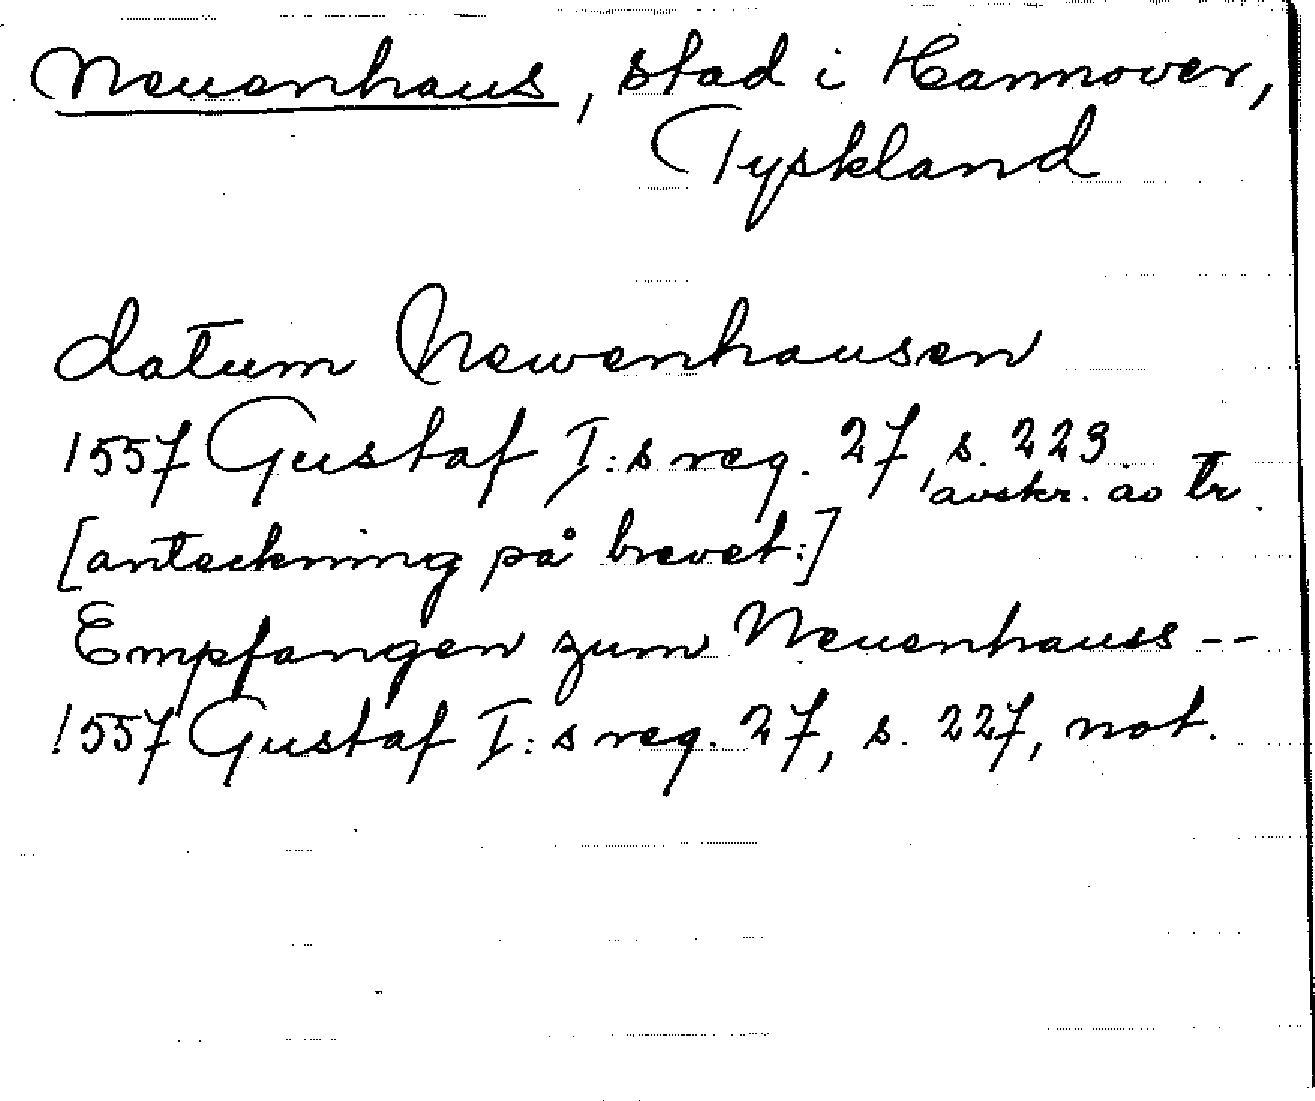 Neuenhaus, stad i Hannover,
Tyskland
datum Newenhausen
1557 Gustaf I:s reg. 27, s. 223
avskr. äo tr
[anteckning på brevet:]
Empfangen zum Neuenhauss --
1557 Gustaf I:s reg. 27, s. 227, not.